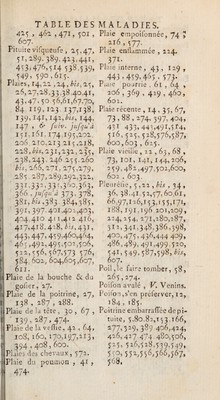 TABLE DES MALADIES.
425, 462, 471, 501,
607.
Pituite visqueuse, 25. 47.
51. 289. 389. 423. 441,
453, 476, 514 538. 539,
549, 590. 615.
Plaies, 14. 22, 24, bis, 25,
26, 27, 28. 33. 38. 40. 41,
43. 47. 50 56, 61, 67. 70,
84 119. 123 137. 138,
139. 141, 142, bis, 144.
147, & suiv. jusqu'à
151. 161. 174. 195. 202.
206 210. 213 215. 218.
228, bis, 231, 232, 235,
238. 243. 246 255. 260
bis, 266, 271, 275. 279,
285 287. 289. 292. 322,
331. 332, 351, 360, 363,
366, jusqu'à 373, 378,
381, bis, 383 384, 385,
391, 397. 401. 402. 403,
404, 410 411. 412 416,
417. 418. 428. bis, 431,
443, 447, 459. 460. 464,
465, 492, 495, 501, 506,
522, 556, 567, 573 576,
584, 602, 604, 605, 607,
611.
Plaie de la bouche & du
gosier, 27.
Plaie de la poitrine, 27,
138, 287, 288.
Plaie de la tête, 30, 67,
139, 287, 474.
Plaie de la vessie, 42, 64,
108, 160, 170, 197, 213,
394, 408, 600.
Plaies des chevaux, 572.
Plaie du poumon, 41,
474.
Plaie empoisonnée, 74
216, 577.
Plaie enflammée, 224.
371.
Plaie interne, 43, 129,
443, 459, 465. 573.
Plaie pourrie, 61, 64,
206, 369, 419, 460,
601.
Plaie récente, 14. 35, 67,
73, 88, 274, 397, 404,
431 433, 441, 491, 514,
516, 525, 528, 576, 587,
600, 603, 625.
Plaie vieille, 22, 63, 68,
73, 101, 141, 144, 206,
259, 482, 497, 502, 600,
602, 603.
Pleurésie, 5, 22, bis, 34,
36, 38. 41. 52, 77, 60. 61,
66, 97, 126, 153, 155, 171,
188, 191, 196 201, 209,
224, 254, 271, 280, 287,
312, 341, 348, 386, 398,
400, 475, 436, 444 409,
486, 489, 491, 499, 520,
541, 549, 587, 598, bis,
607.
Poil, le faire tomber, 58,
265, 274.
Poison avalé, V. Venins.
Poison, s'en préserver, 12,
184, 185.
Poitrine embarrassée de pi-
tuite, 5, 80, 82, 153, 166,
277, 529, 389 406, 424,
426, 427 474 480, 506,
525, 526, 528, 539, 549,
550, 552, 556, 566, 567,
568.